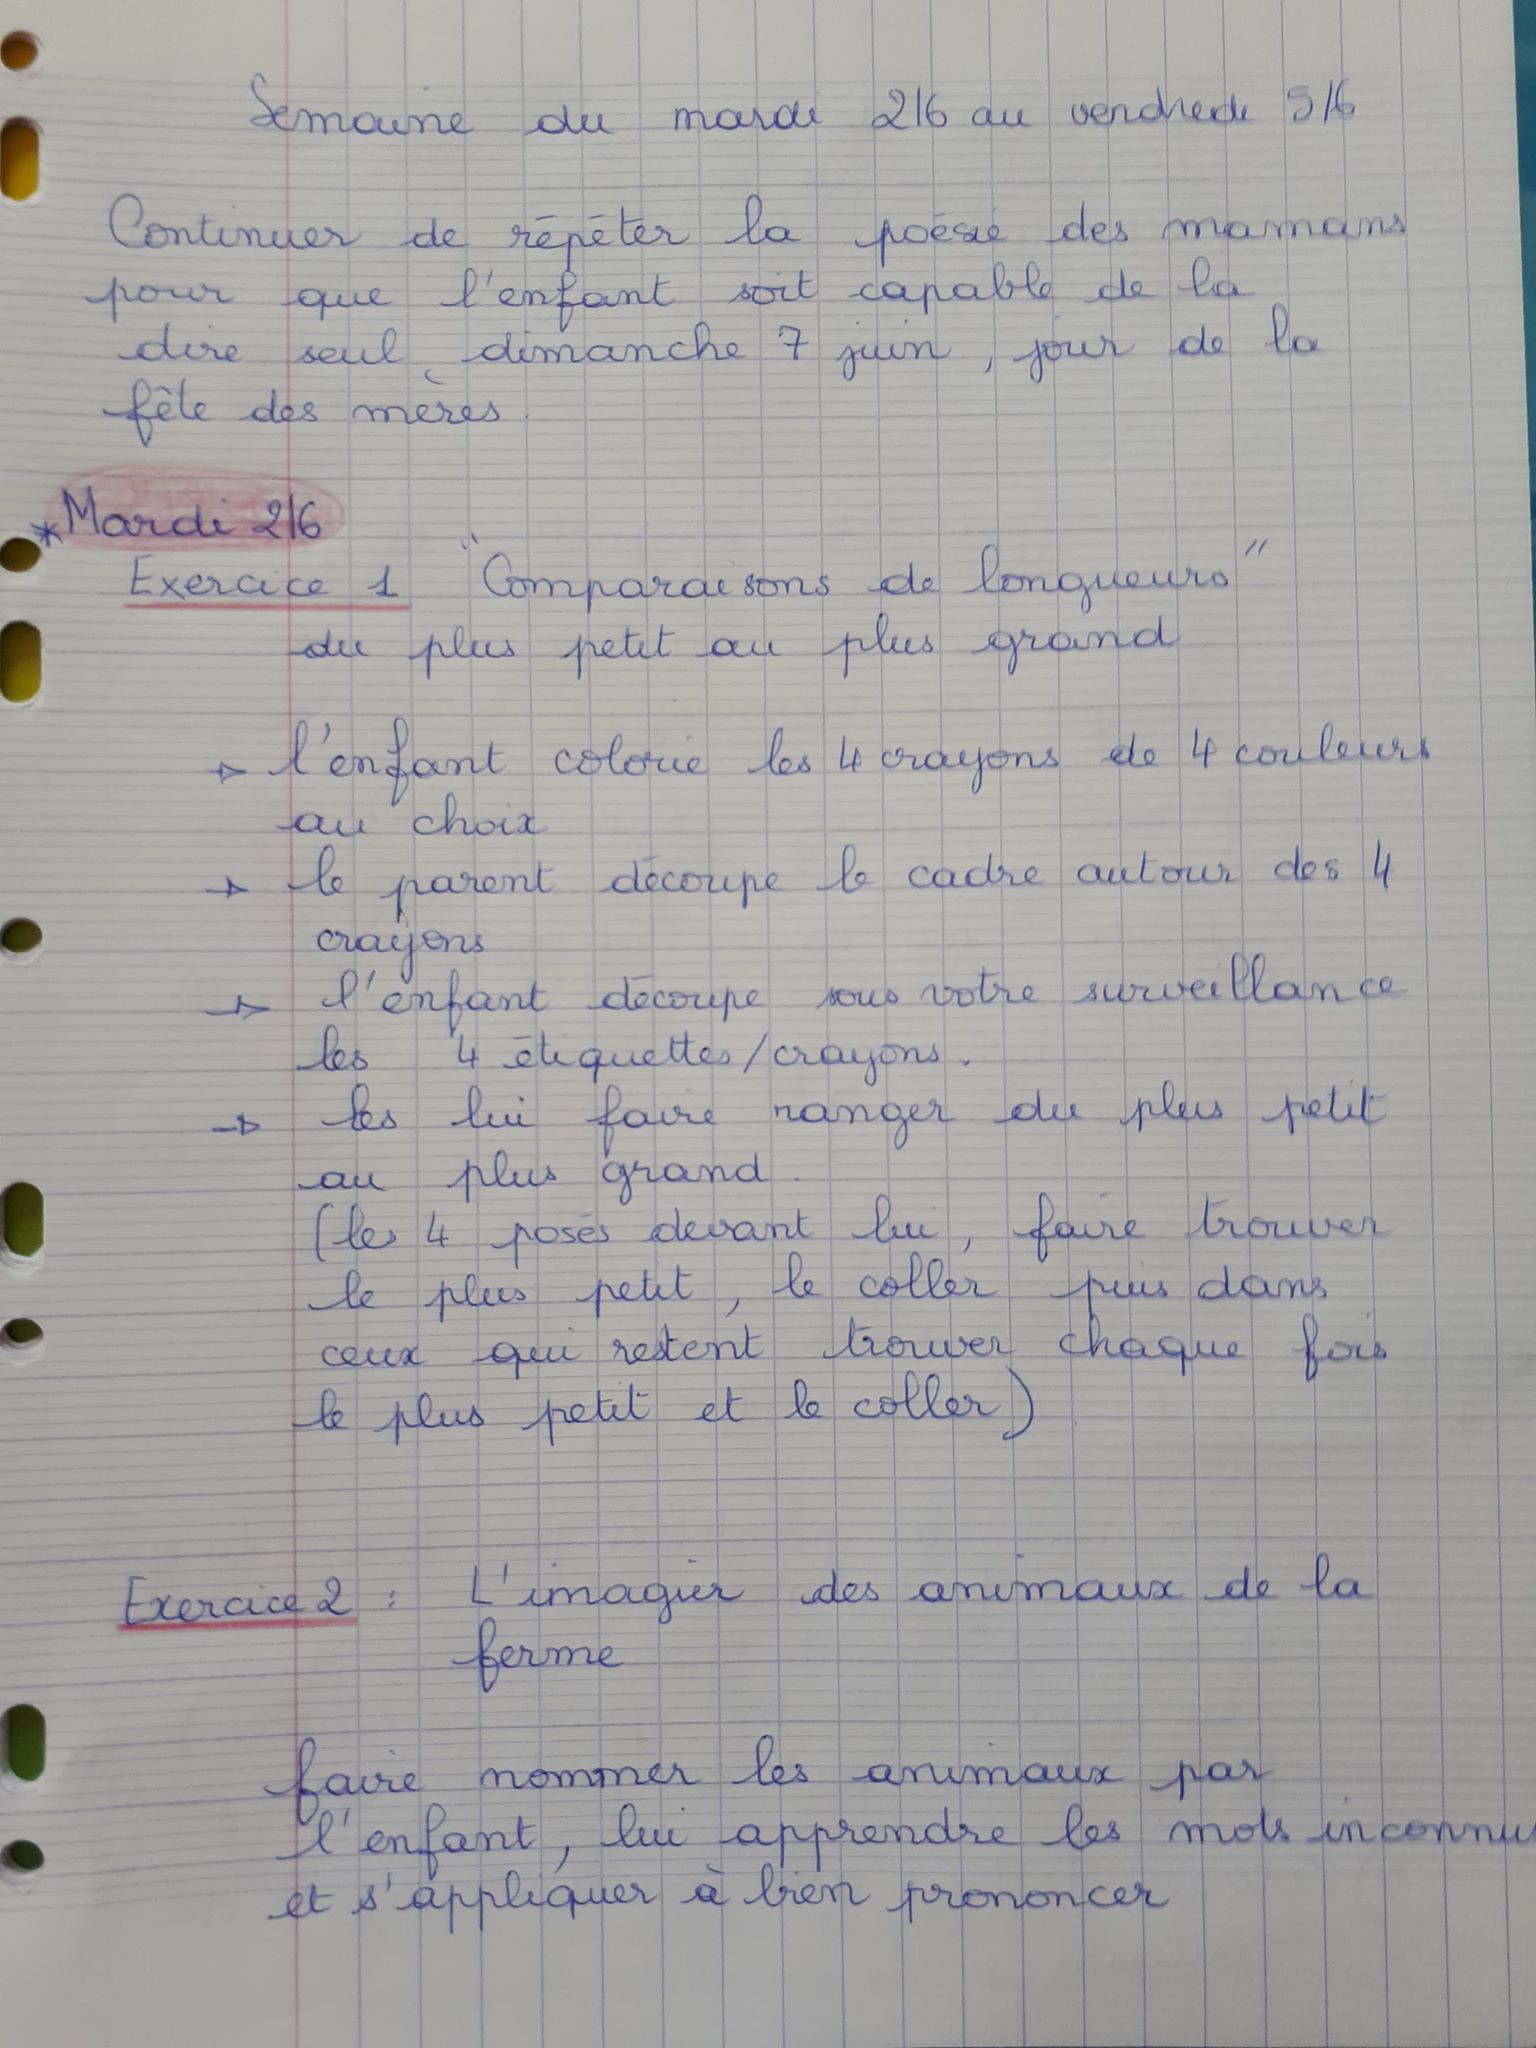 Semaine du mardi 2/6 au vendredi 5/6
Continuer de répéter la poésie des mamans
pour que l'enfant soit capable de la
dire seul, dimanche 7 juin, jour de la
fête des mères.
* Mardi 2/6
Exercice 1 "Comparaisons de longueurs"
du plus petit au plus grand
→ l'enfant colorie les 4 crayons de 4 couleurs
au choix
→ le parent découpe le cadre autour des 4
crayons
→ l'enfant découpe sous votre surveillance
les 4 étiquettes/crayons.
→ les lui faire ranger du plus petit
au plus grand.
(les 4 posés devant lui, faire trouver
le plus petit, le coller puis dans
ceux qui restent trouver chaque fois
le plus petit et le coller)
Exercice 2 : L'imagier des animaux de la
ferme
faire nommer les animaux par
l'enfant, lui apprendre les mots inconnus
et s'appliquer à bien prononcer